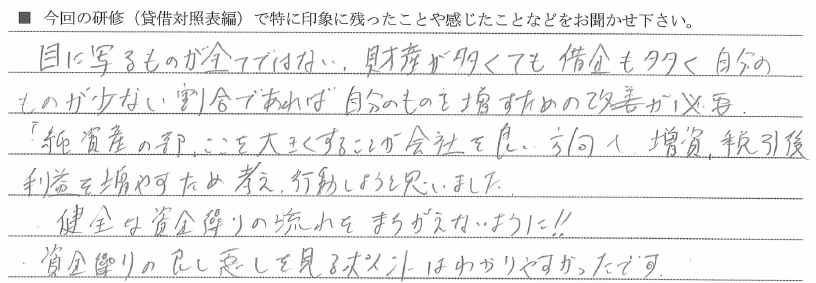 ■ 今回の研修（貸借対照表編）で特に印象に残ったことや感じたことなどをお聞かせ下さい。
目に写るものが全てではない、財産が多くても借金も多く自分の
ものが少ない割合であれば自分のものを増すための改善が必要。
「純資産の部」ここを大きくすることが会社を良い方向へ 増資，税引後
利益を増やすため考え、行動しようと思いました。
健全な資金繰りの流れをまちがえないように!!
資金繰りの良し悪しを見るポイントはわかりやすかったです。